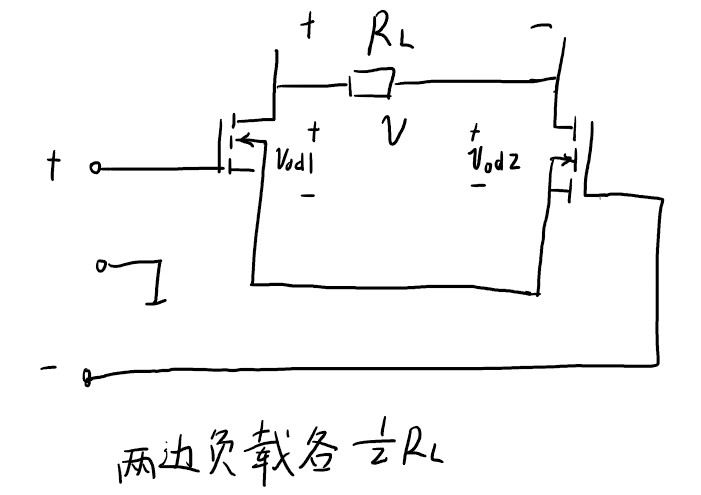 + R_L -
+ V_od1 - V + V_od2 -
+
-
两边负载各 1/2 R_L